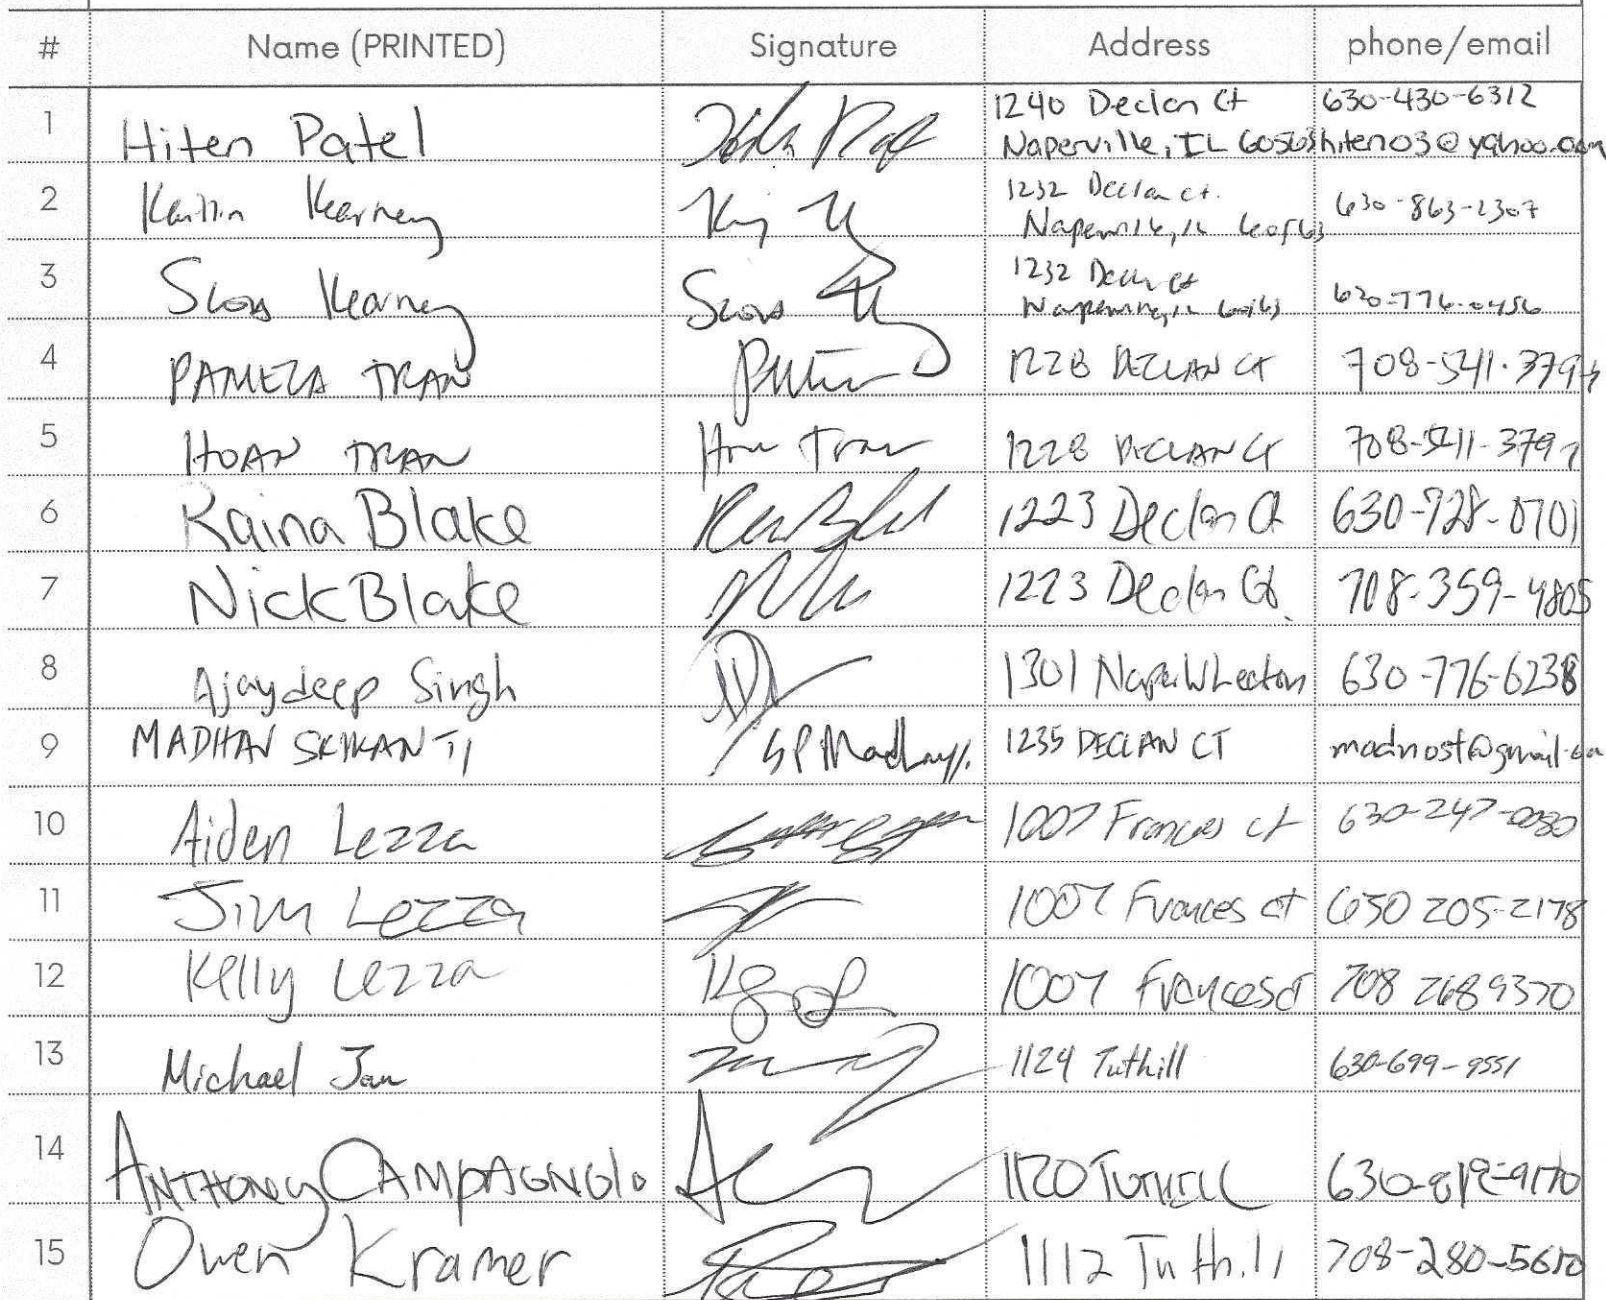 # Name (PRINTED) Signature Address phone/email
1 Hiten Patel 1240 Declan Ct 630-430-6312
Naperville, IL 60563 hiten03@yahoo.com
2 Kaitlin Kearney 1232 Declan ct. 630-863-2307
Naperville, IL 60563
3 Scott Kearney Scott 1232 Declan Ct
Naperville, IL 60563
4 PAMELA TRAN 1228 DECLAN CT
5 HOAN TRAN Hoan Tran 1228 DECLAN CT
6 Raina Blake 1223 Declan Ct 630-728-0701
7 Nick Blake 1223 Declan Ct. 708-359-4805
8 Ajaydeep Singh 1301 Naper 630-776-6238
9 MADHAV SRIKANTI SP 1235 DECLAN CT
10 Aiden Lezza 1007 Frances ct 630-247-0080
11 Jim Lezza 1007 Frances ct 630 205-2178
12 Kelly Lezza 1007 Frances ct 708 268 9370
13 Michael Jan 1124 Tuthill 630-699-9551
14 ANTHONY CAMPAGNOLO 1120 TUTHILL
15 Owen Kramer 1112 Tuthill 708-280-5610